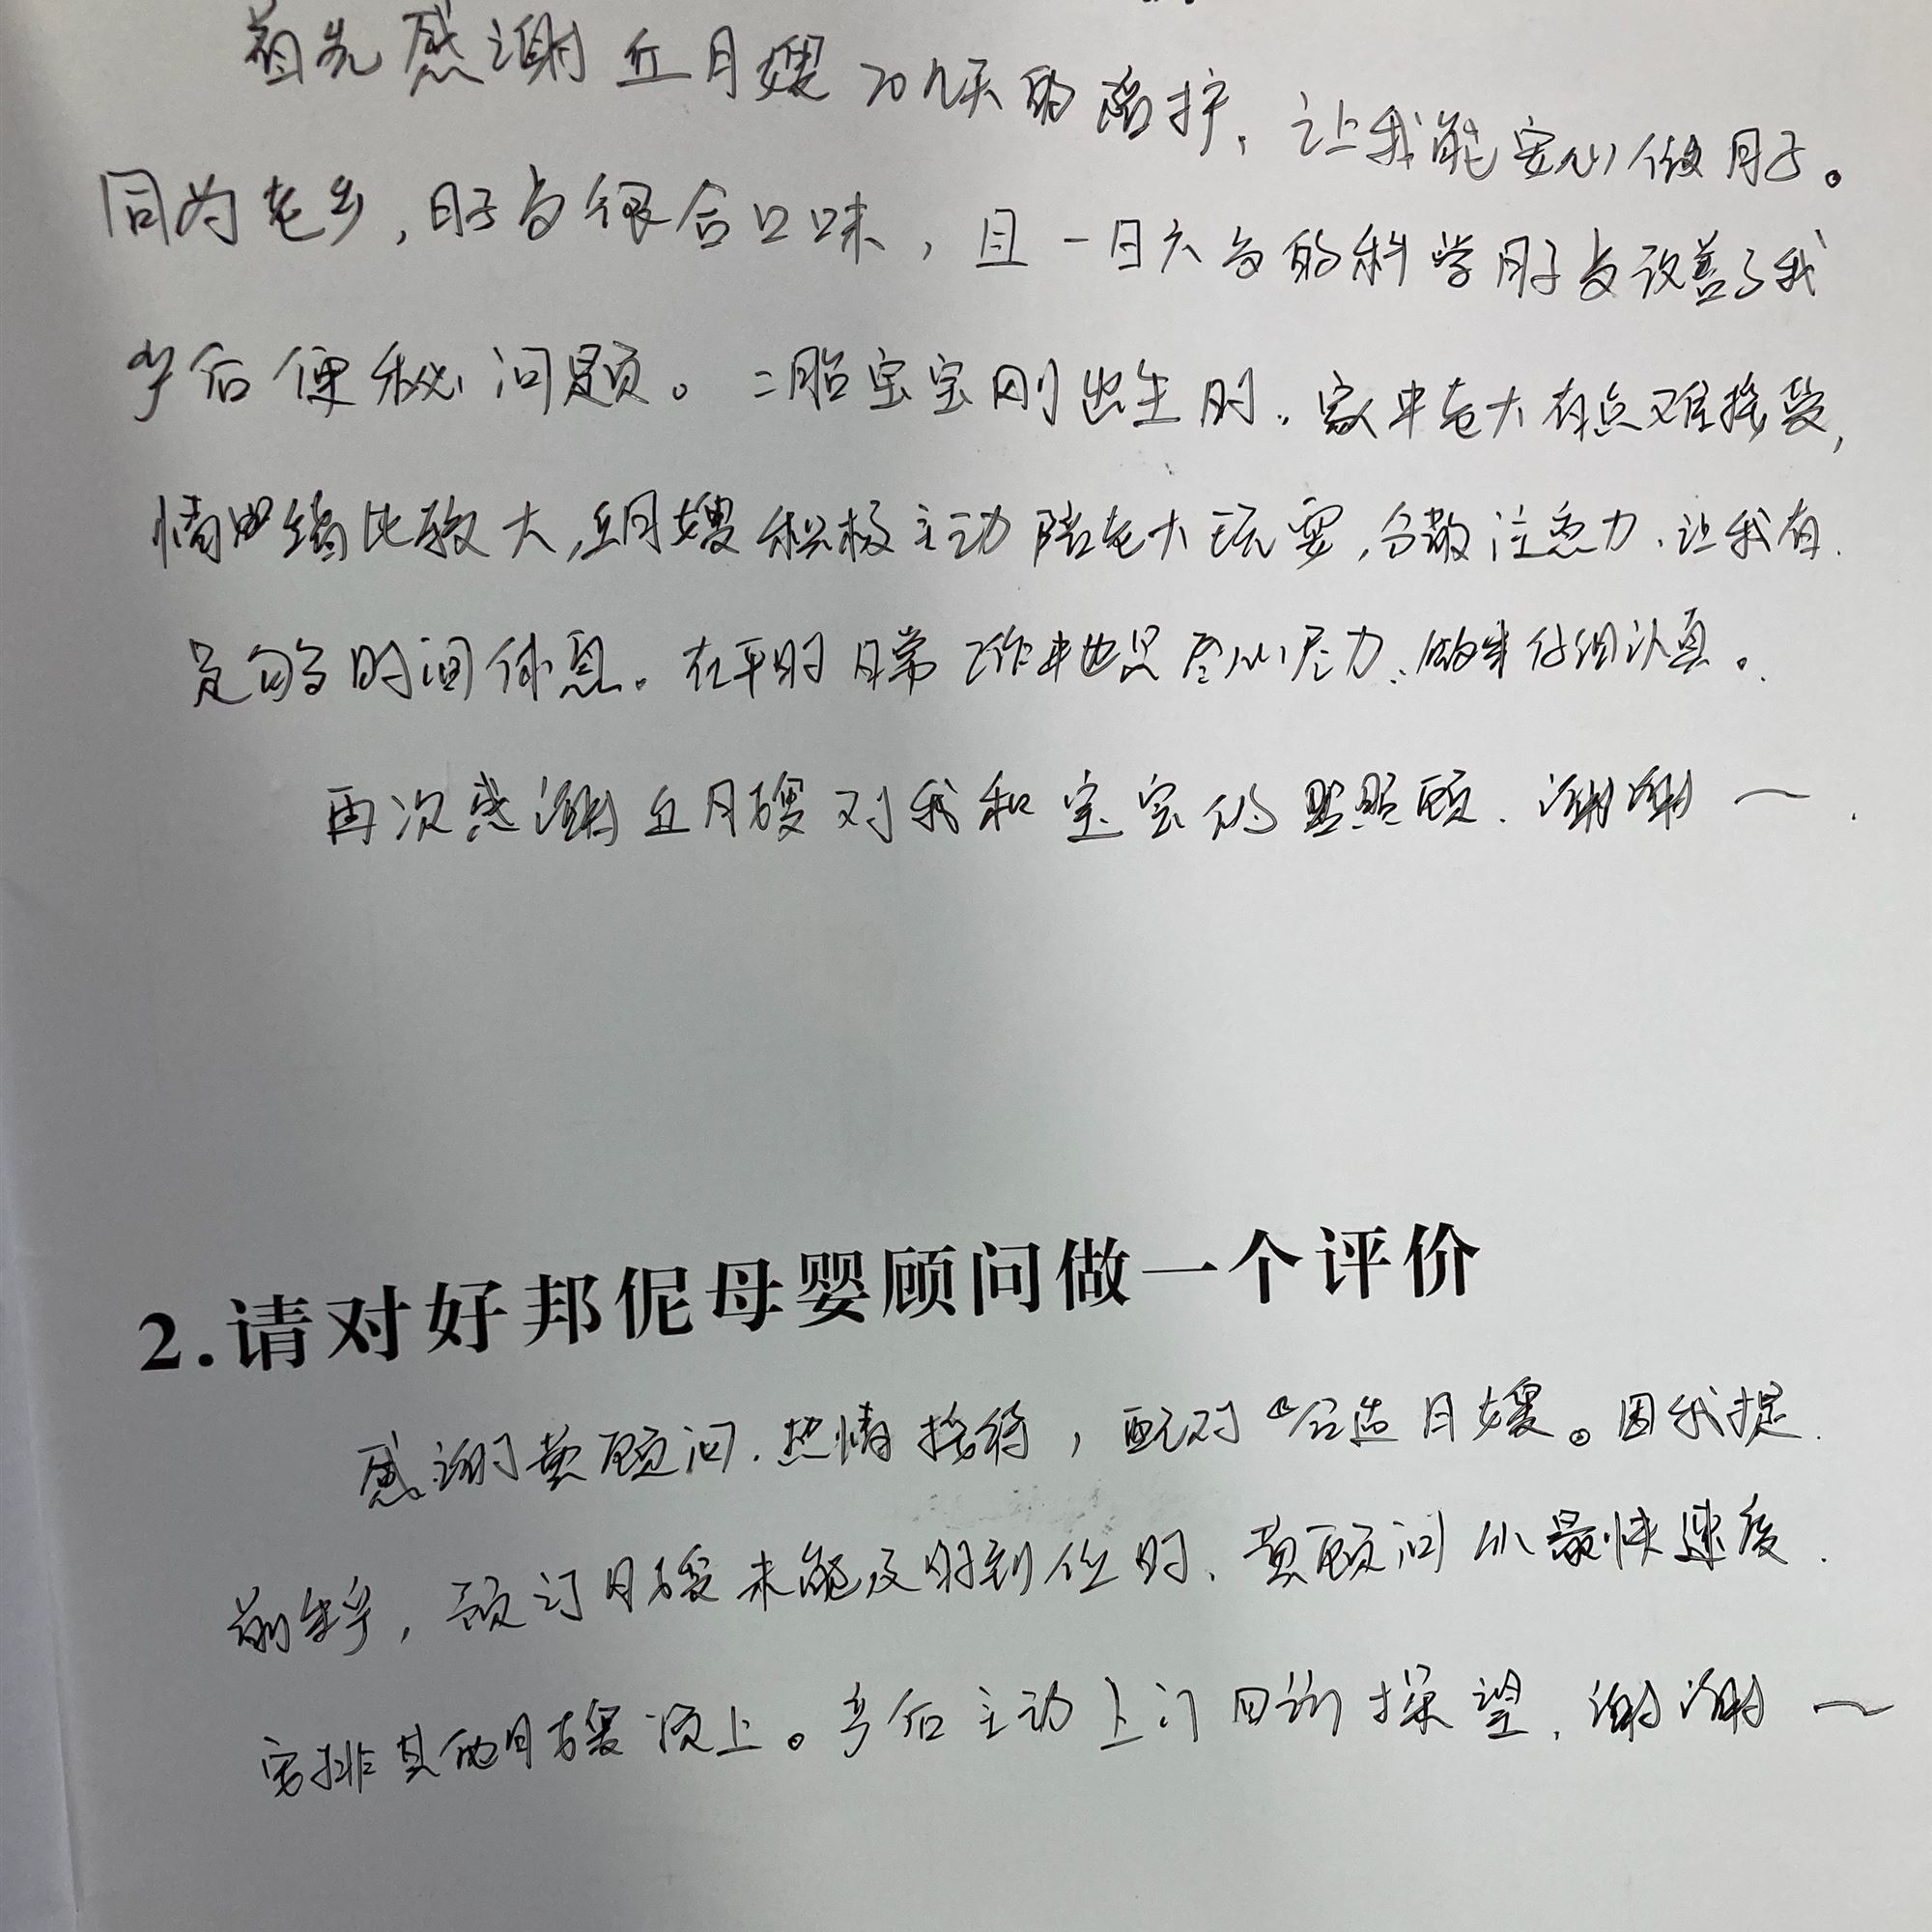 首先感谢丘月嫂20几天的陪护，让我能安心做月子。
同为老乡，月子与很合口味，且一日六与的科学月子与改善了我
产后便秘问题。二胎宝宝刚出生时，家中老大有点难接受，
情绪比较大，丘月嫂积极主动陪老大玩耍，分散注意力，让我有
足够时间休息。在平时日常工作中也是尽心尽力，做事仔细认真。
再次感谢丘月嫂对我和宝宝的照顾，谢谢～
2.请对好邦伲母婴顾问做一个评价
感谢黄顾问热情接待，配对合适月嫂。因我提
前生产，预订月嫂未能及时到位时，黄顾问以最快速度
安排其他月嫂顶上。产后主动上门回访探望，谢谢～